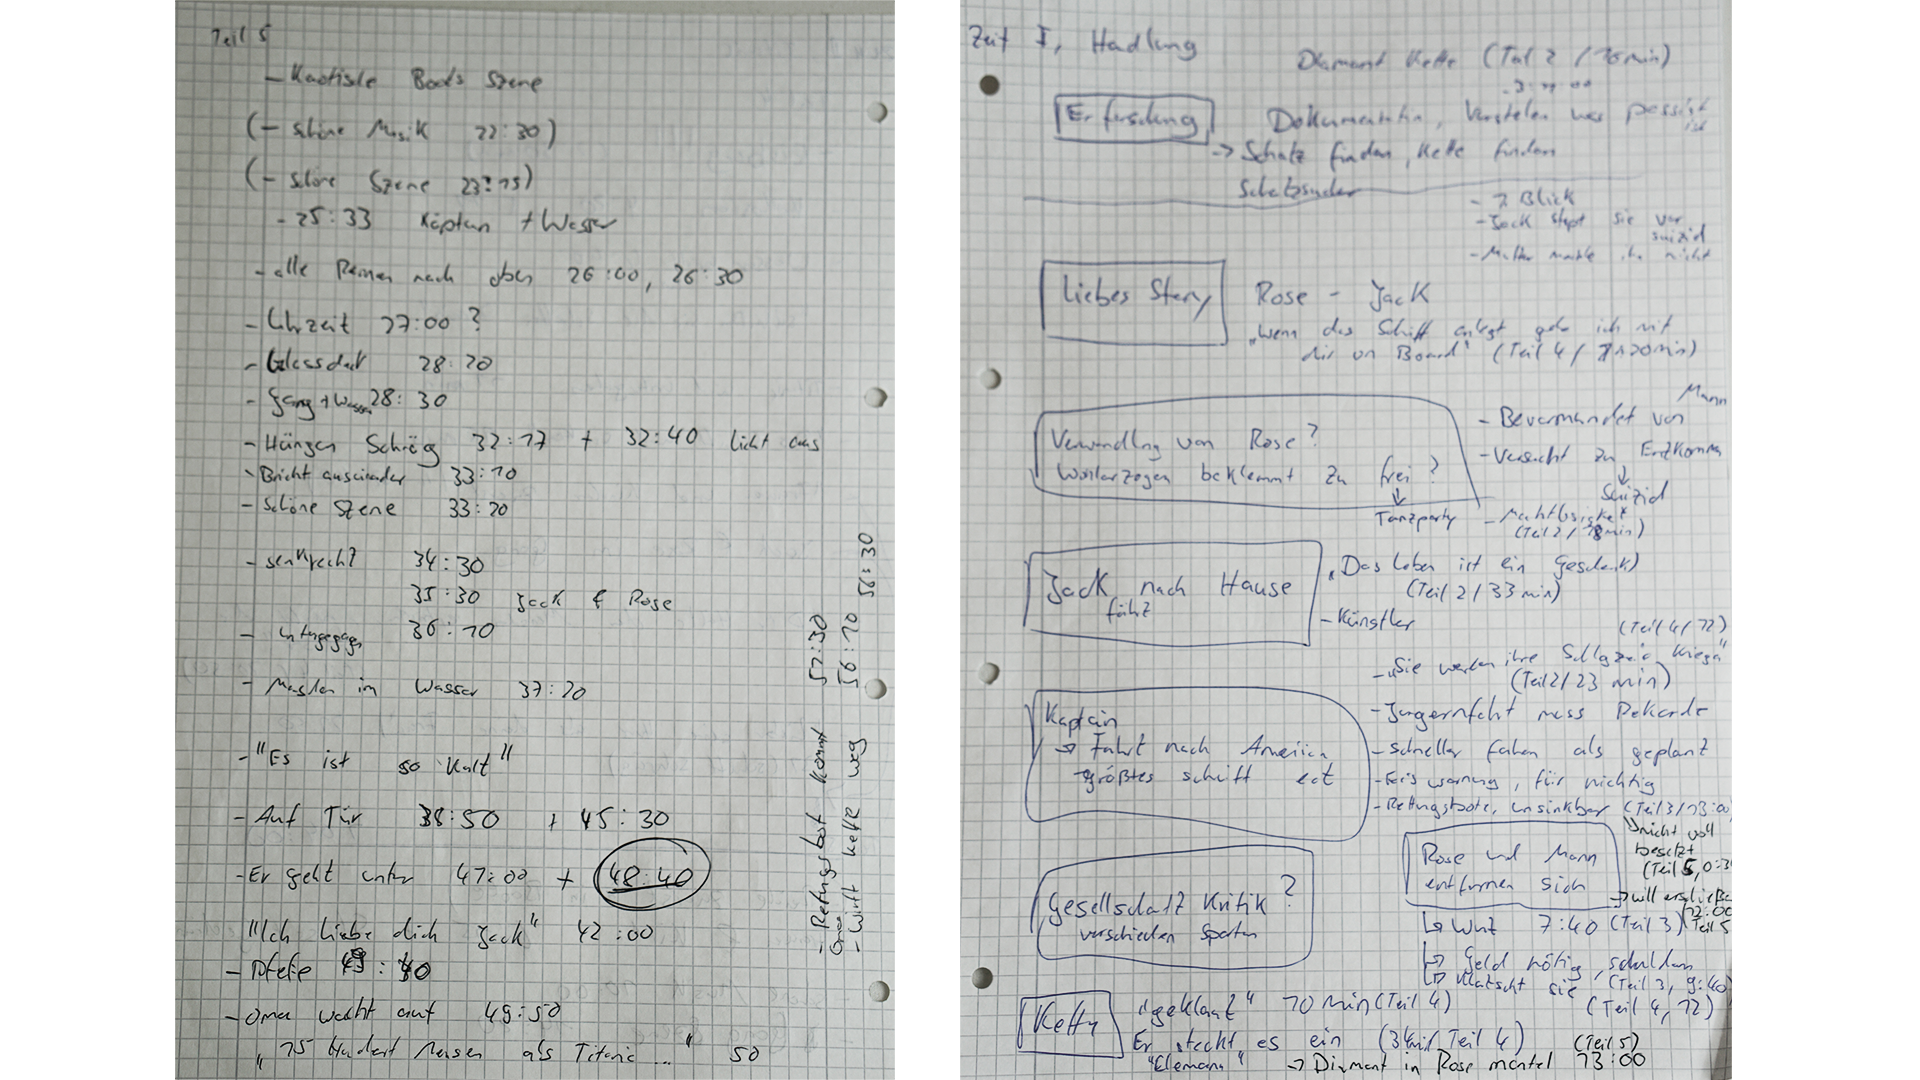 Teil 5
- Kaotische Boots Szene
(- schöne Musik 22:30)
(- schöne Szene 23:15)
- 25:33 Käptan + Wasser
- alle Rennen nach oben 26:00, 26:30
- Uhrzeit 27:00 ?
- Glasdach 28:20
- Gang + Wasser 28:30
- Hängen Schräg 32:17 + 32:40 licht aus
- Bricht auseinader 33:10
- Schöne Szene 33:20
- senkrecht 34:30
35:30 Jack & Rose
- untergegagen 36:10
- Masten in Wasser 37:20
- "Es ist so kalt"
- Auf Tür 38:50 + 45:30
- Er geht unter 47:00 + 48:40
"Ich liebe dich Jack" 42:00
- Pfeife 49:40
- Oma wacht auf 49:50
"15 Hundert Mensen als Titanic..." 50
- Rettungsboot kommt 57:30
Oma 56:10
- wirft kette weg 56:30
Zeit I, Hadlung
Diamant Kette (Teil 2 / 16 min)
Erforschung
Dokumentatin, Verstehen was passiert ist
-> Schatz finden, Kette finden
Schatzsucher
- 1 Blick
- Jack stopt sie vor suizid
- Mutter mochte ihn nicht
Liebes Story
Rose - Jack
„Wenn das Schiff anlegt gehe ich mit
dir von Board" (Teil 4 / 1:20min)
Verwandlng von Rose?
Wohlerzogen beklemmt zu frei?
↓
Tanzparty
- Bevormundet von Mann
- Versucht zu Entkommn
↓
Suizid
- Machtlosigkeit
(Teil 2 / 18min)
Jack nach Hause
fährt
„Das Leben ist ein Geschenk)
(Teil 2 / 33 min)
- Künstler
(Teil 4 / 12)
- „Sie werden ihre Schlagzeile kriegen"
(Teil 2 / 23 min)
Kaptain
-> Fahrt nach Amerika
größtes schiff ect
- Jungernfaht muss Rekorde
- schneller fahen als geplant
- Eiswarnung, für nichtig
- Rettungsbote, unsinkbar (Teil 3 / 13:00
nicht voll
besetzt
(Teil 5, 0:3
Rose und Mann
entfernen sich
-> will erschließen
12:00
Teil 5
↳ Wut 7:40 (Teil 3)
↳ Geld nötig, schulden
↳ klatscht sie (Teil 3, 9:40)
(Teil 4, 12)
Gesellschaft Kritik ?
verschieden Sparten
Kette
„geklaut" 10 min (Teil 4)
Er steckt es ein (34min Teil 4)
(Teil 5)
-> Diamant in Rose mantel 13:00